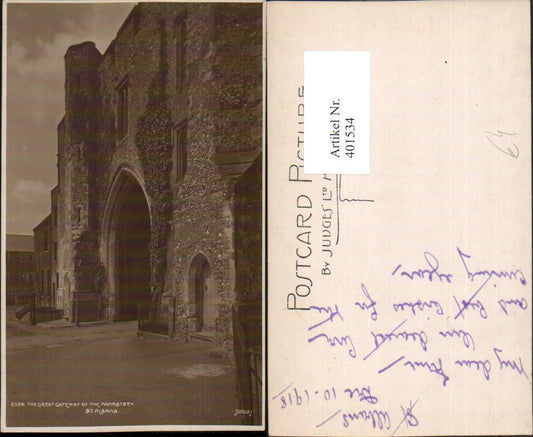 2506. THE GREAT GATEWAY OF THE MONASTERY.
ST. ALBANS.
Judges
POSTCARD PICTURE
BY JUDGES' LTD
Artikel Nr.
401534
64
St Albans
Dec 10 - 1918
My dear
and best wishes for the
coming year